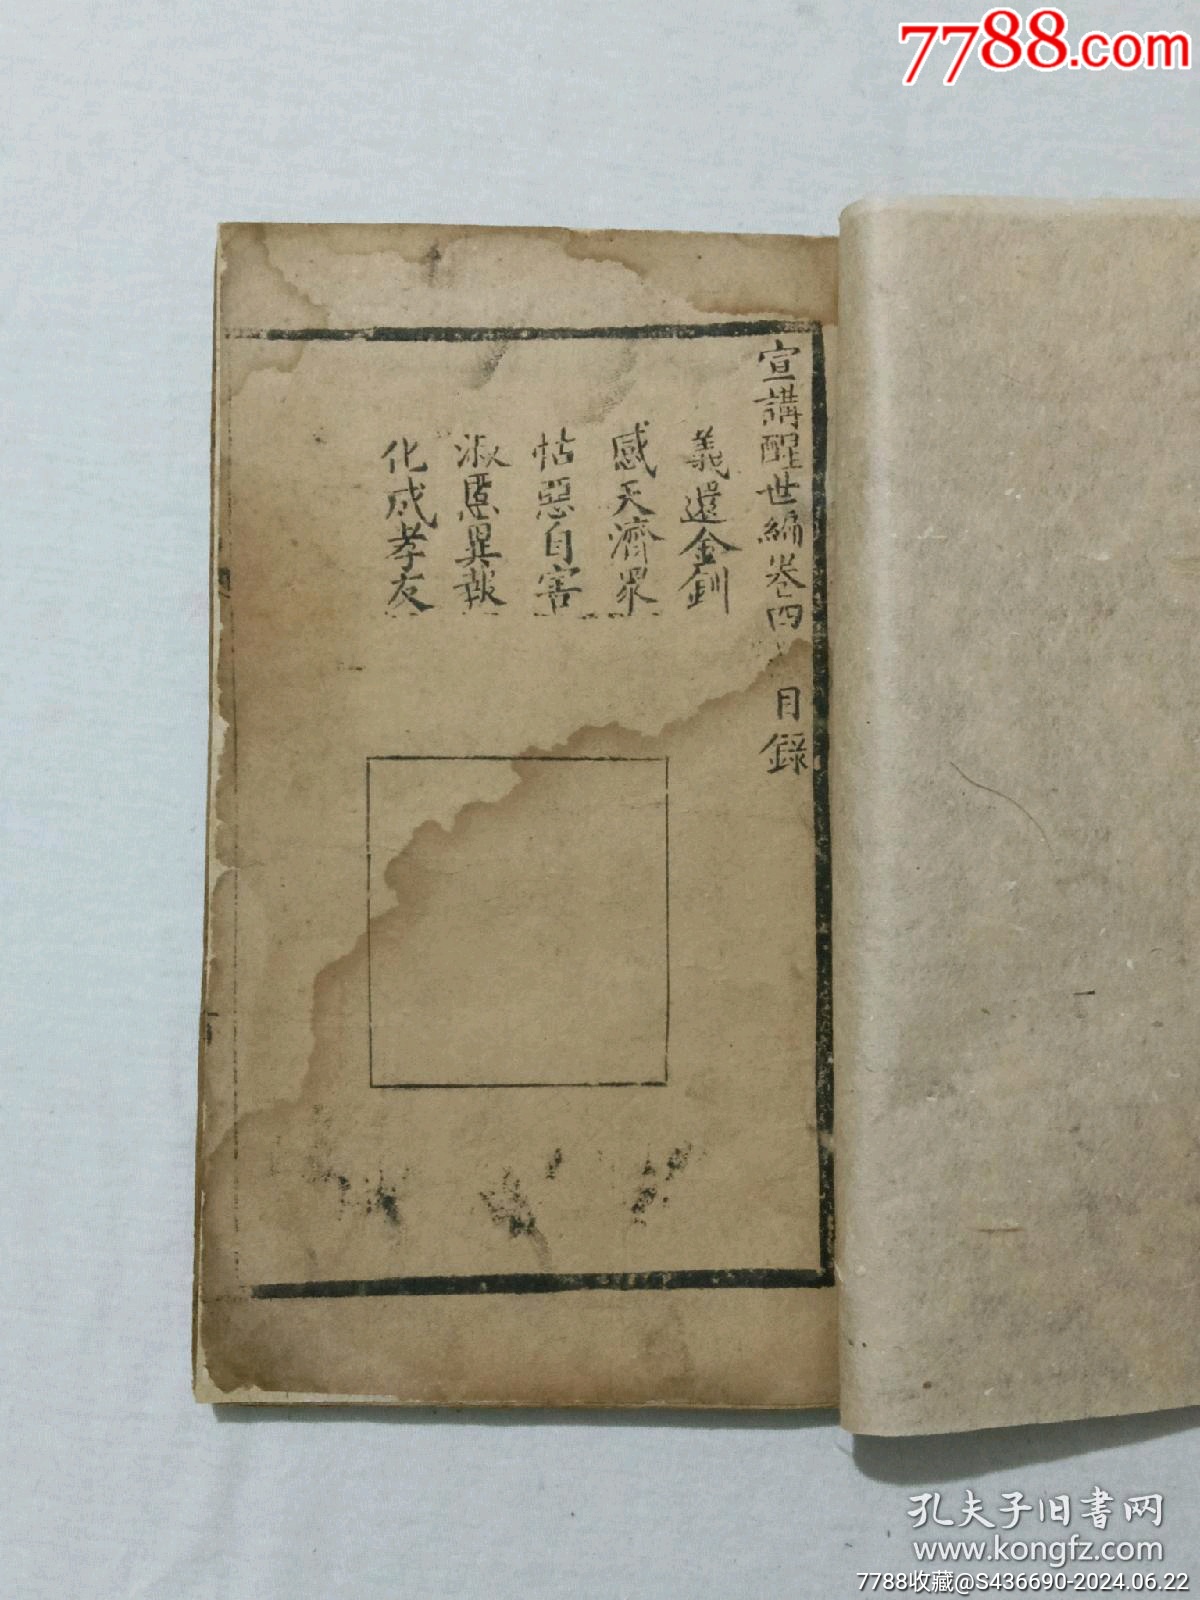 7788.com
宣講醒世編卷四 目錄
義還金釧
感天濟眾
怙惡自害
淑慝異報
化成孝友
孔夫子旧书网
www.kongfz.com
7788收藏@S436690-2024.06.22